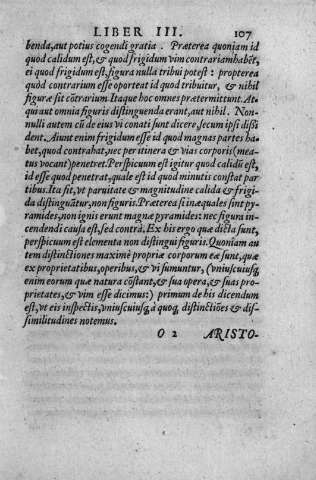 LIBER III. 107
benda, aut potius cogendi gratia. Præterea quoniam id
quod calidum est, & quod frigidum vim contrariam habēt,
ei quod frigidum est, figura nulla tribui potest: propterea
quòd contrarium esse oporteat id quod tribuitur, & nihil
figuræ sit cōtrarium. Itaque hoc omnes prætermittunt. At-
qui aut omnia figuris distinguenda erant, aut nihil. Non-
nulli autem cū de eius vi conati sunt dicere, secum ipsi dissi
dent. Aiunt enim frigidum esse id quod magnas partes ha-
bet, quod contrahat, nec per itinera & vias corporis (mea-
tus vocant) penetret. Perspicuum est igitur quod calidū est,
id esse quod penetrat, quale est id quod minutis constat par
tibus. Ita fit, vt paruitate & magnitudine calida & frigi-
da distinguātur, non figuris. Præterea si inæquales sint py-
ramides, non ignis erunt magnæ pyramides: nec figura in-
cendendi causa est, sed contrà. Ex his ergo quæ dicta sunt,
perspicuum est elementa non distingui figuris. Quoniam au
tem distinctiones maximè propriæ corporum eæ sunt, quæ
ex proprietatibus, operibus, & vi sumuntur, (vniuscuiusq;
enim eorum quæ natura cōstant, & sua opera, & suas pro-
prietates, & vim esse dicimus:) primum de his dicendum
est, vt eis inspectis, vniuscuiusq; à quoq; distinctiōes & dis-
similitudines notemus.
O 2 ARISTO-